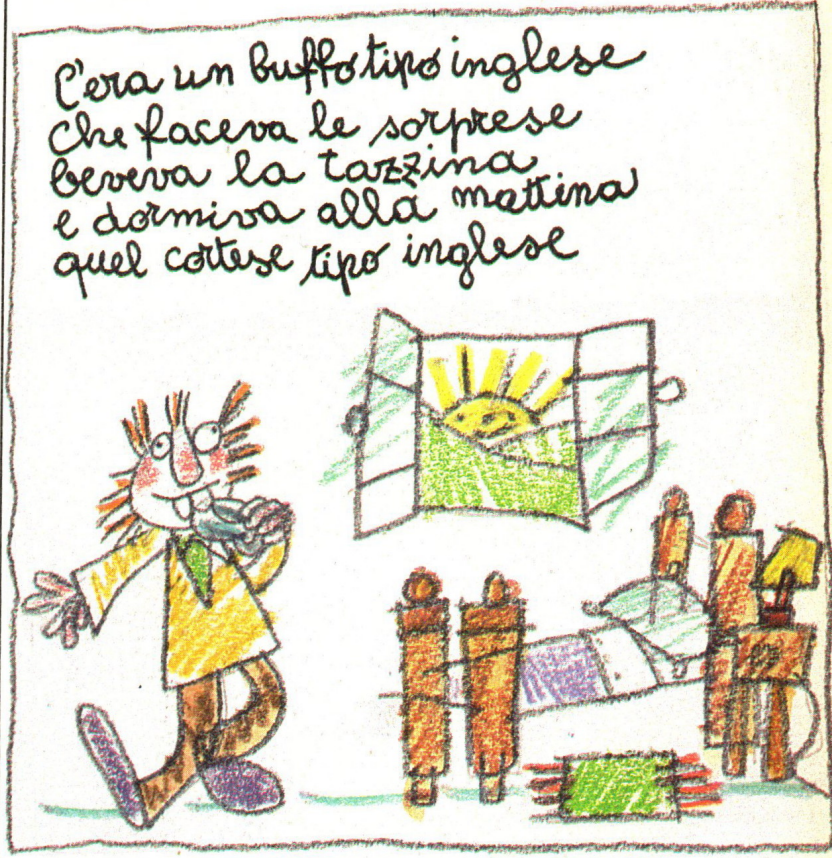 C'era un buffo tipo inglese
che faceva le sorprese
beveva la tazzina
e dormiva alla mattina
quel cortese tipo inglese